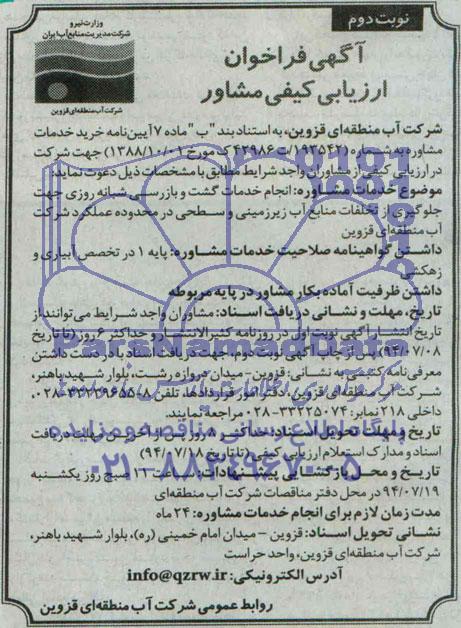 نوبت دوم
وزارت نیرو
شرکت مدیریت منابع آب ایران
شرکت آب منطقه‌ای قزوین
آگهی فراخوان
ارزیابی کیفی مشاور
شرکت آب منطقه‌ای قزوین، به استناد بند "ب" ماده ۷ آیین‌نامه خرید خدمات
مشاوره به شماره (۱۹۳۵۴۲/ت ۴۲۹۸۶ک مورخ ۱۳۸۸/۱۰/۰۱) جهت شرکت
در ارزیابی کیفی از مشاوران واجد شرایط مطابق با مشخصات ذیل دعوت نماید:
موضوع خدمات مشاوره: انجام خدمات گشت و بازرسی شبانه روزی جهت
جلوگیری از تخلفات منابع آب زیرزمینی و سطحی در محدوده عملکرد شرکت
آب منطقه‌ای قزوین
داشتن گواهینامه صلاحیت خدمات مشاوره: پایه ۱ در تخصص آبیاری و
زهکشی
داشتن ظرفیت آماده بکار مشاور در پایه مربوطه
تاریخ، مهلت و نشانی دریافت اسناد: مشاوران واجد شرایط می‌توانند از
تاریخ انتشار آگهی نوبت اول در روزنامه کثیرالانتشار و حداکثر ۶ روز (تا تاریخ
۹۴/۰۷/۰۸) پس از چاپ آگهی نوبت دوم، جهت دریافت اسناد با در دست داشتن
معرفی‌نامه کتبی به نشانی: قزوین - میدان دروازه رشت، بلوار شهید باهنر،
شرکت آب منطقه‌ای قزوین، دفتر امور قراردادها، تلفن ۸-۳۳۲۳۹۶۵۵-۰۲۸،
داخلی ۲۱۸ نمابر: ۳۳۲۲۵۰۷۴-۰۲۸ مراجعه نمایند.
تاریخ و مهلت تحویل اسناد: حداکثر ۸ روز پس از آخرین مهلت دریافت
اسناد و مدارک استعلام ارزیابی کیفی (تا تاریخ ۹۴/۰۷/۱۸)
تاریخ و محل بازگشایی پیشنهادات: ساعت ۱۱ صبح روز یکشنبه
۹۴/۰۷/۱۹ در محل دفتر مناقصات شرکت آب منطقه‌ای
مدت زمان لازم برای انجام خدمات مشاوره: ۲۴ ماه
نشانی تحویل اسناد: قزوین - میدان امام خمینی (ره)، بلوار شهید باهنر،
شرکت آب منطقه‌ای قزوین، واحد حراست
آدرس الکترونیکی: info@qzrw.ir
روابط عمومی شرکت آب منطقه‌ای قزوین
ParsNamadData
پایگاه اطلاع رسانی مناقصه و مزایده
۰۲۱-۸۸۳۴۹۶۷۰-۵